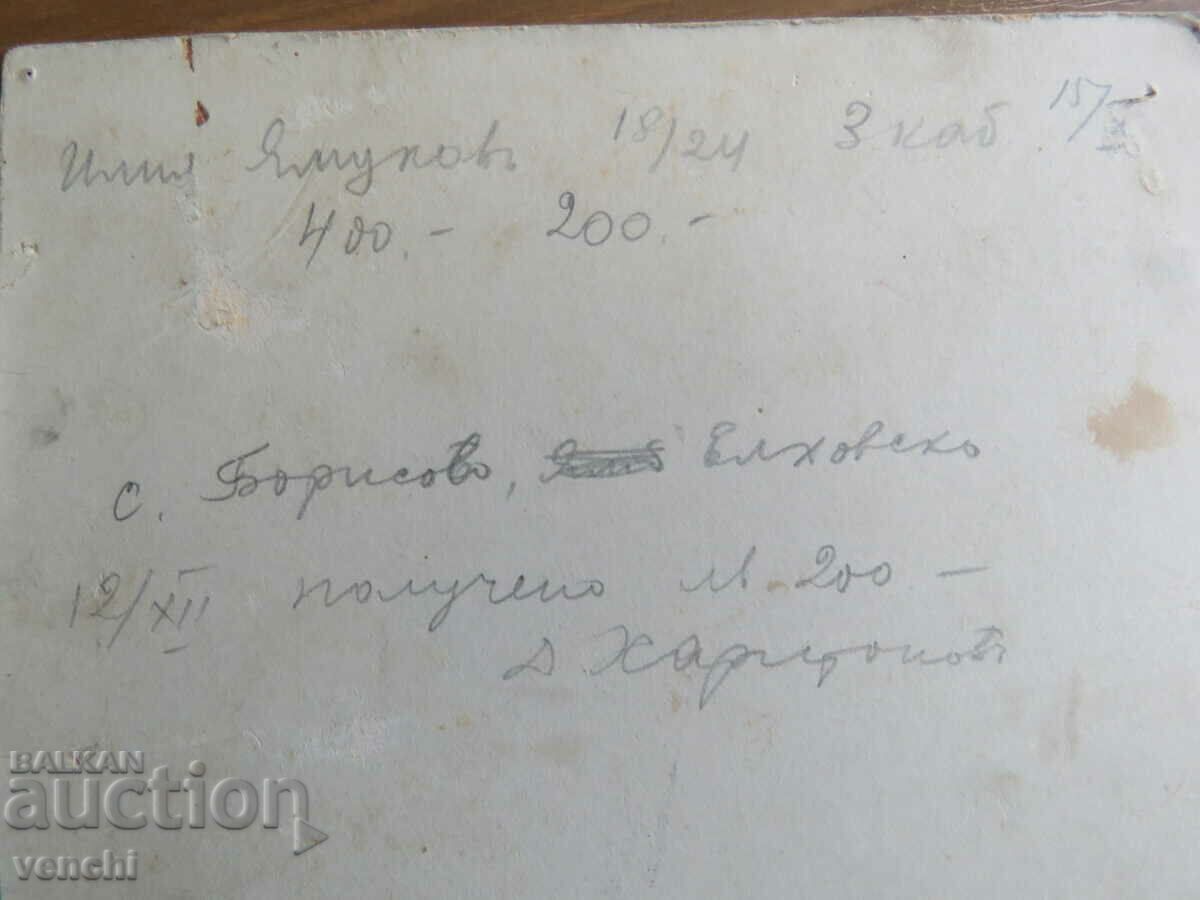 Илия Ямуковъ 18/24 3 каб 15/X
400.- 200.-
с. Борисово, Елховско
12/XII получено лв. 200 —
Д Харитоновъ
BALKAN
auction
venchi